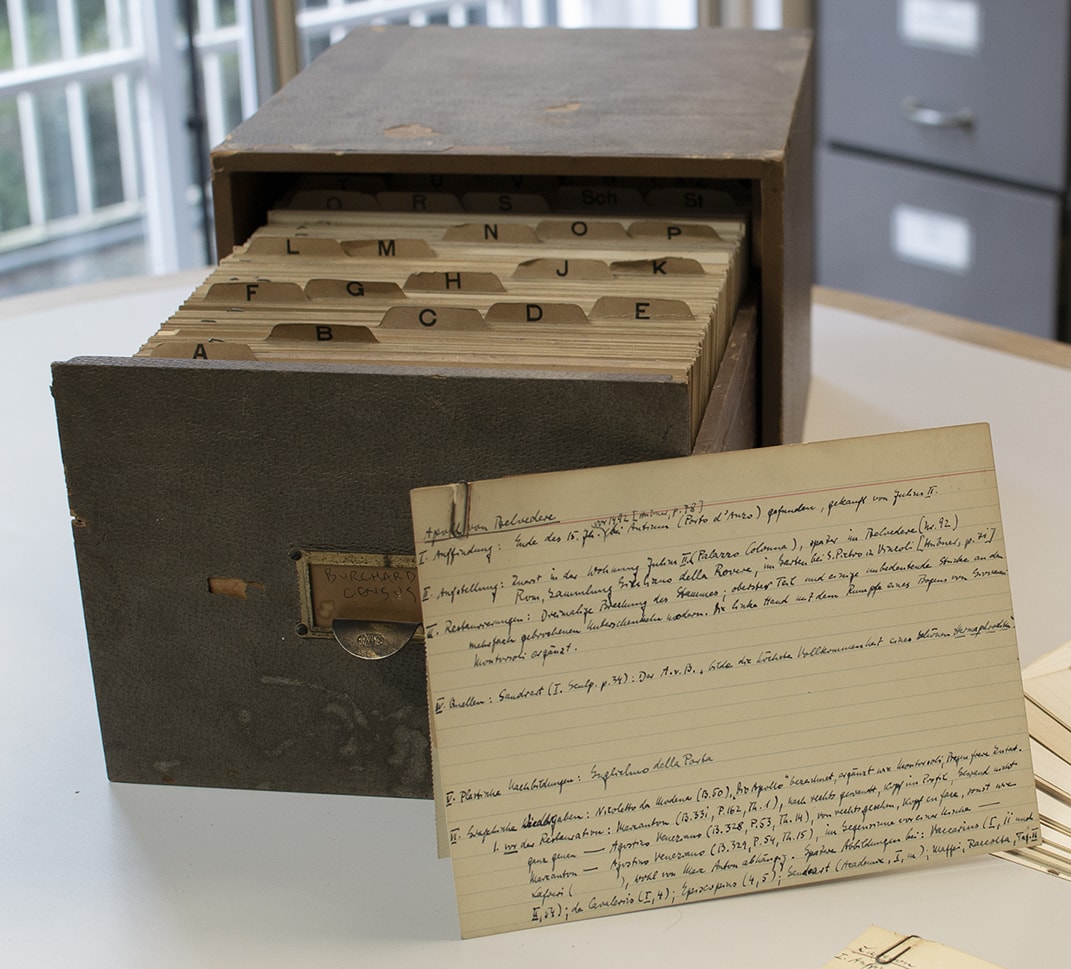 Q R S Sch St
L M N O P
F G H J K
A B C D E
BURCHARD
CENSUS
Apoll von Belvedere
vor 1492 [Hübner, p. 78]
I. Auffindung: Ende des 15. Jh. bei Antium (Porto d'Anzo) gefunden, gekauft von Julius II.
II. Aufstellung: Zuerst in der Wohnung Julius II (Palazzo Colonna), später im Belvedere (Nr. 92)
Rom, Sammlung Giuliano della Rovere, im Garten bei S. Pietro in Vincoli [Hübner, p. 71]
III. Restaurierungen: Dreimalige Brechung des Stammes; oberster Teil und einige unbedeutende Stücke an den
mehrfach gebrochenen Unterschenkeln modern. Die linke Hand mit dem Rumpfe eines Bogens von Giovanni
Montorsoli ergänzt.
IV. Quellen: Sandrart (I. Sculp. p. 34): Der A.v.B. „ bilde die höchste Vollkommenheit eines schönen Hermaphroditen"
V. Plastische Nachbildungen: Guglielmo della Porta
VI. Graphische Wiedergaben: Nicoletto da Modena (B. 50), „Der Apollo" bezeichnet, ergänzt wie Montorsoli,
1. vor der Restauration: Marcanton (B. 331, P. 162, Th. 1), nach rechts gewandt, Kopf im Profil, Gewand nicht
ganz genau — Agostino Veneziano (B. 328, P. 53, Th. 14), von rechts gesehen, Kopf en face, sonst wie
Marcanton — Agostino Veneziano (B. 329, P. 54, Th. 15), im Gegensinne vor einer Nische —
Lafreri ( ), wohl von Marc Anton abhängig. Spätere Abbildungen bei: Vaccarius (I, ii und
II, 54); de Cavaleriis (I, 4); Episcopius (4, 5); Sandrart (Academie, I, m); Maffei, Raccolta, Taf. II